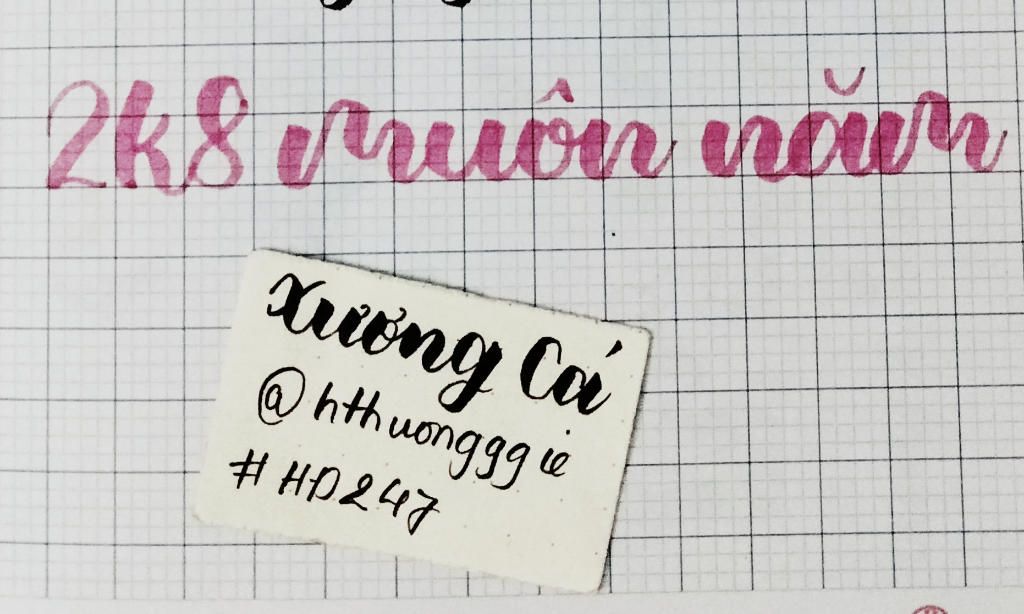 2k8 muôn năm
Xương Cá
@hthuongggie
#HD247